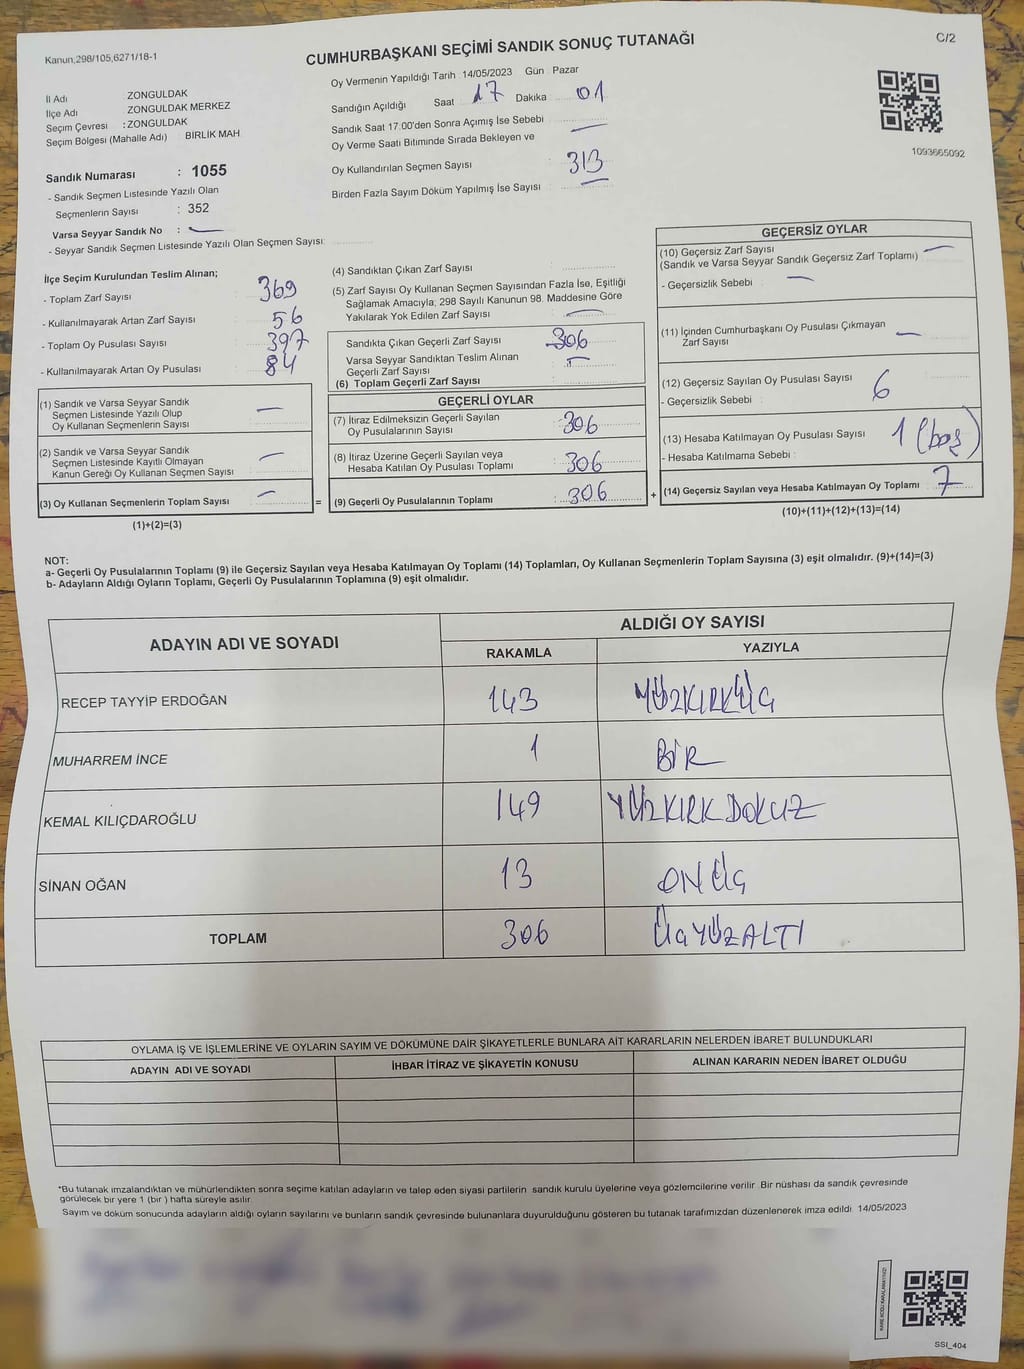 Kanun,298/105,6271/18-1
C/2
CUMHURBAŞKANI SEÇİMİ SANDIK SONUÇ TUTANAĞI
Oy Vermenin Yapıldığı Tarih : 14/05/2023 Gün : Pazar
İl Adı ZONGULDAK
İlçe Adı ZONGULDAK MERKEZ
Seçim Çevresi : ZONGULDAK
Seçim Bölgesi (Mahalle Adı) BIRLIK MAH
Sandığın Açıldığı Saat 17 Dakika 01
Sandık Saat 17:00'den Sonra Açımış İse Sebebi
Oy Verme Saati Bitiminde Sırada Bekleyen ve
Oy Kullandırılan Seçmen Sayısı 313
Birden Fazla Sayım Döküm Yapılmış İse Sayısı
1093665092
Sandık Numarası : 1055
- Sandık Seçmen Listesinde Yazılı Olan
Seçmenlerin Sayısı : 352
Varsa Seyyar Sandık No :
- Seyyar Sandık Seçmen Listesinde Yazılı Olan Seçmen Sayısı:
İlçe Seçim Kurulundan Teslim Alınan;
- Toplam Zarf Sayısı 369
- Kullanılmayarak Artan Zarf Sayısı 56
- Toplam Oy Pusulası Sayısı 397
- Kullanılmayarak Artan Oy Pusulası 84
(1) Sandık ve Varsa Seyyar Sandık
Seçmen Listesinde Yazılı Olup
Oy Kullanan Seçmenlerin Sayısı
(2) Sandık ve Varsa Seyyar Sandık
Seçmen Listesinde Kayıtlı Olmayan
Kanun Gereği Oy Kullanan Seçmen Sayısı
(3) Oy Kullanan Seçmenlerin Toplam Sayısı =
(1)+(2)=(3)
(4) Sandıktan Çıkan Zarf Sayısı
(5) Zarf Sayısı Oy Kullanan Seçmen Sayısından Fazla İse, Eşitliği
Sağlamak Amacıyla; 298 Sayılı Kanunun 98. Maddesine Göre
Yakılarak Yok Edilen Zarf Sayısı
Sandıkta Çıkan Geçerli Zarf Sayısı 306
Varsa Seyyar Sandıktan Teslim Alınan
Geçerli Zarf Sayısı
(6) Toplam Geçerli Zarf Sayısı
GEÇERLİ OYLAR
(7) İtiraz Edilmeksizin Geçerli Sayılan
Oy Pusulalarının Sayısı 306
(8) İtiraz Üzerine Geçerli Sayılan veya
Hesaba Katılan Oy Pusulası Toplamı 306
(9) Geçerli Oy Pusulalarının Toplamı 306 +
GEÇERSİZ OYLAR
(10) Geçersiz Zarf Sayısı
(Sandık ve Varsa Seyyar Sandık Geçersiz Zarf Toplamı)
- Geçersizlik Sebebi :
(11) İçinden Cumhurbaşkanı Oy Pusulası Çıkmayan
Zarf Sayısı
(12) Geçersiz Sayılan Oy Pusulası Sayısı 6
- Geçersizlik Sebebi :
(13) Hesaba Katılmayan Oy Pusulası Sayısı 1 (boş)
- Hesaba Katılmama Sebebi :
(14) Geçersiz Sayılan veya Hesaba Katılmayan Oy Toplamı 7
(10)+(11)+(12)+(13)=(14)
NOT:
a- Geçerli Oy Pusulalarının Toplamı (9) ile Geçersiz Sayılan veya Hesaba Katılmayan Oy Toplamı (14) Toplamları, Oy Kullanan Seçmenlerin Toplam Sayısına (3) eşit olmalıdır. (9)+(14)=(3)
b- Adayların Aldığı Oyların Toplamı, Geçerli Oy Pusulalarının Toplamına (9) eşit olmalıdır.
ADAYIN ADI VE SOYADI
ALDIĞI OY SAYISI
RAKAMLA YAZIYLA
RECEP TAYYİP ERDOĞAN 143 YÜZKIRKÜÇ
MUHARREM İNCE 1 BİR
KEMAL KILIÇDAROĞLU 149 YÜZKIRK DOKUZ
SİNAN OĞAN 13 ONÜÇ
TOPLAM 306 ÜÇYÜZALTI
OYLAMA İŞ VE İŞLEMLERİNE VE OYLARIN SAYIM VE DÖKÜMÜNE DAİR ŞİKAYETLERLE BUNLARA AİT KARARLARIN NELERDEN İBARET BULUNDUKLARI
ADAYIN ADI VE SOYADI İHBAR İTİRAZ VE ŞİKAYETİN KONUSU ALINAN KARARIN NEDEN İBARET OLDUĞU
*Bu tutanak imzalandıktan ve mühürlendikten sonra seçime katılan adayların ve talep eden siyasi partilerin sandık kurulu üyelerine veya gözlemcilerine verilir. Bir nüshası da sandık çevresinde
görülecek bir yere 1 (bir) hafta süreyle asılır.
Sayım ve döküm sonucunda adayların aldığı oyların sayılarını ve bunların sandık çevresinde bulunanlara duyurulduğunu gösteren bu tutanak tarafımızdan düzenlenerek imza edildi. 14/05/2023
SSI_404